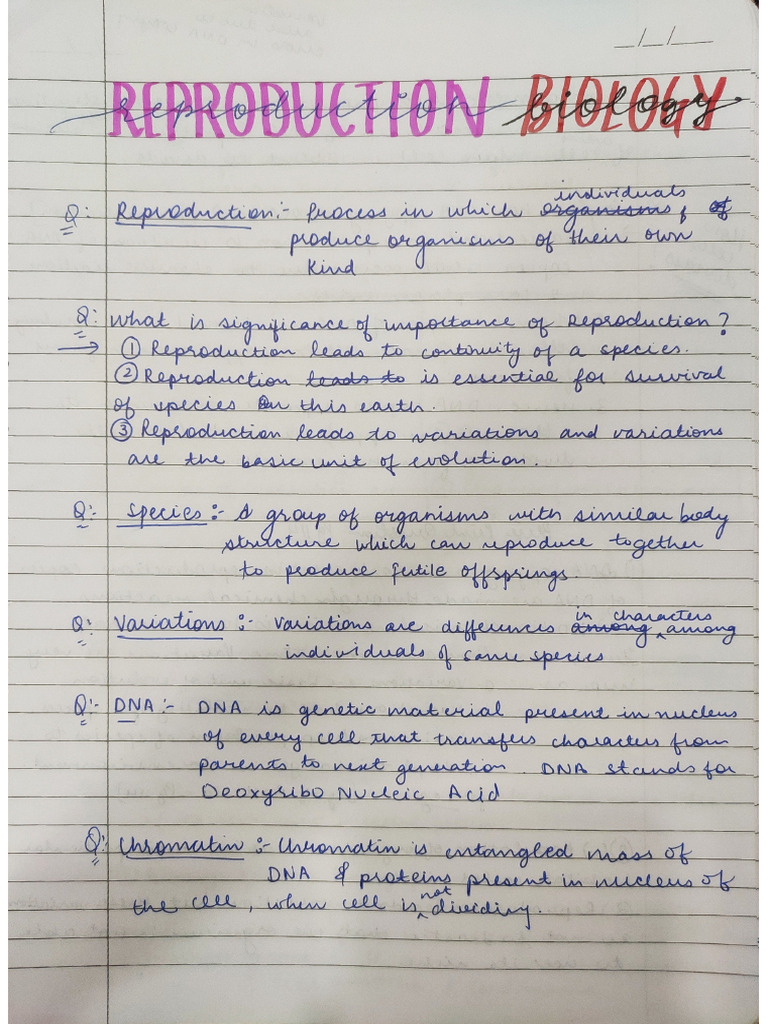 _/_/___
REPRODUCTION BIOLOGY
reproduction biology
individuals
Q: Reproduction:- Process in which organisms, of
produce organisms of their own
kind
Q: What is significance of importance of Reproduction?
→ ① Reproduction leads to continuity of a species.
② Reproduction leads to is essential for survival
of species on this earth.
③ Reproduction leads to variations and variations
are the basic unit of evolution.
Q:- Species:- A group of organisms with similar body
structure which can reproduce together
to produce futile offsprings.
in characters
Q: Variations:- Variations are differences among ^ among
individuals of same species
Q:- DNA:- DNA is genetic material present in nucleus
of every cell that transfers characters from
parents to next generation. DNA stands for
Deoxyribo Nucleic Acid
Q: Chromatin:- Chromatin is entangled mass of
DNA & proteins present in nucleus of
not
the cell, when cell is ^ dividing.